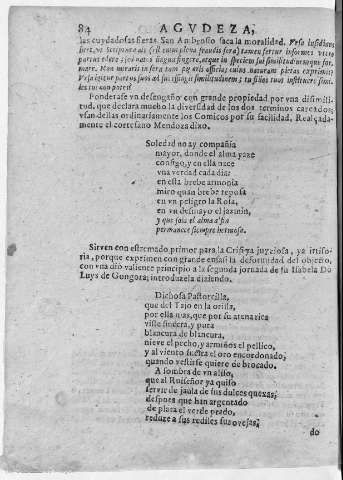 84 AGVDEZA,
las cuydadosas fieras. San Ambrosio saca la moralidad. Vrsa insidiosa
licet, vt Scriptura ait (est enim plena fraudis fera) tamen fertur informes vtero
partus edere; sed natos lingua fingere, atque in speciem sui similitudinemque for-
mare. Non miraris in fera tam pij oris officia; cuius naturam pietas exprimit?
Vrsa igitur partus suos ad sui effingit similitudinem; tu filios tuos instituere simi-
les tui non potes?
Ponderase vn desengaño con grande propiedad por vna disimili-
tud, que declara mucho la diversidad de los dos terminos careados;
vsan dellas ordinariamente los Comicos por su facilidad. Realçada-
mente el cortesano Mendoza dixo.
Soledad no ay compañia
mayor, donde el alma yaze
consigo, y en ella nace
vna verdad cada dia:
en esta brebe armonia
miro quan brebe reposa
en vn peligro la Rosa,
en vn desmayo el jazmin,
y que sola el alma al fin
permanece siempre hermosa.
Sirven con estremado primor para la Crisi ya juyziosa, ya irriso-
ria, porque exprimen con grande enfasi la deformidad del objecto,
con vna dio valiente principio a la segunda jornada de su Isabela Dō
Luys de Gongora; introduzela diziendo.
Dichosa Pastorcilla,
que del Tajo en la orilla,
por ella mas, que por su arena rica
viste sincera, y pura
blancura de blancura,
nieve el pecho, y armiños el pellico,
y al viento suelta el oro encordonado,
quando vestirse quiere de brocado.
A sombra de vn aliso,
que al Ruiseñor ya quiso
servir de jaula de sus dulces quexas;
despues que han argentado
de plata el verde prado,
reduze a sus rediles sus ovejas;
do